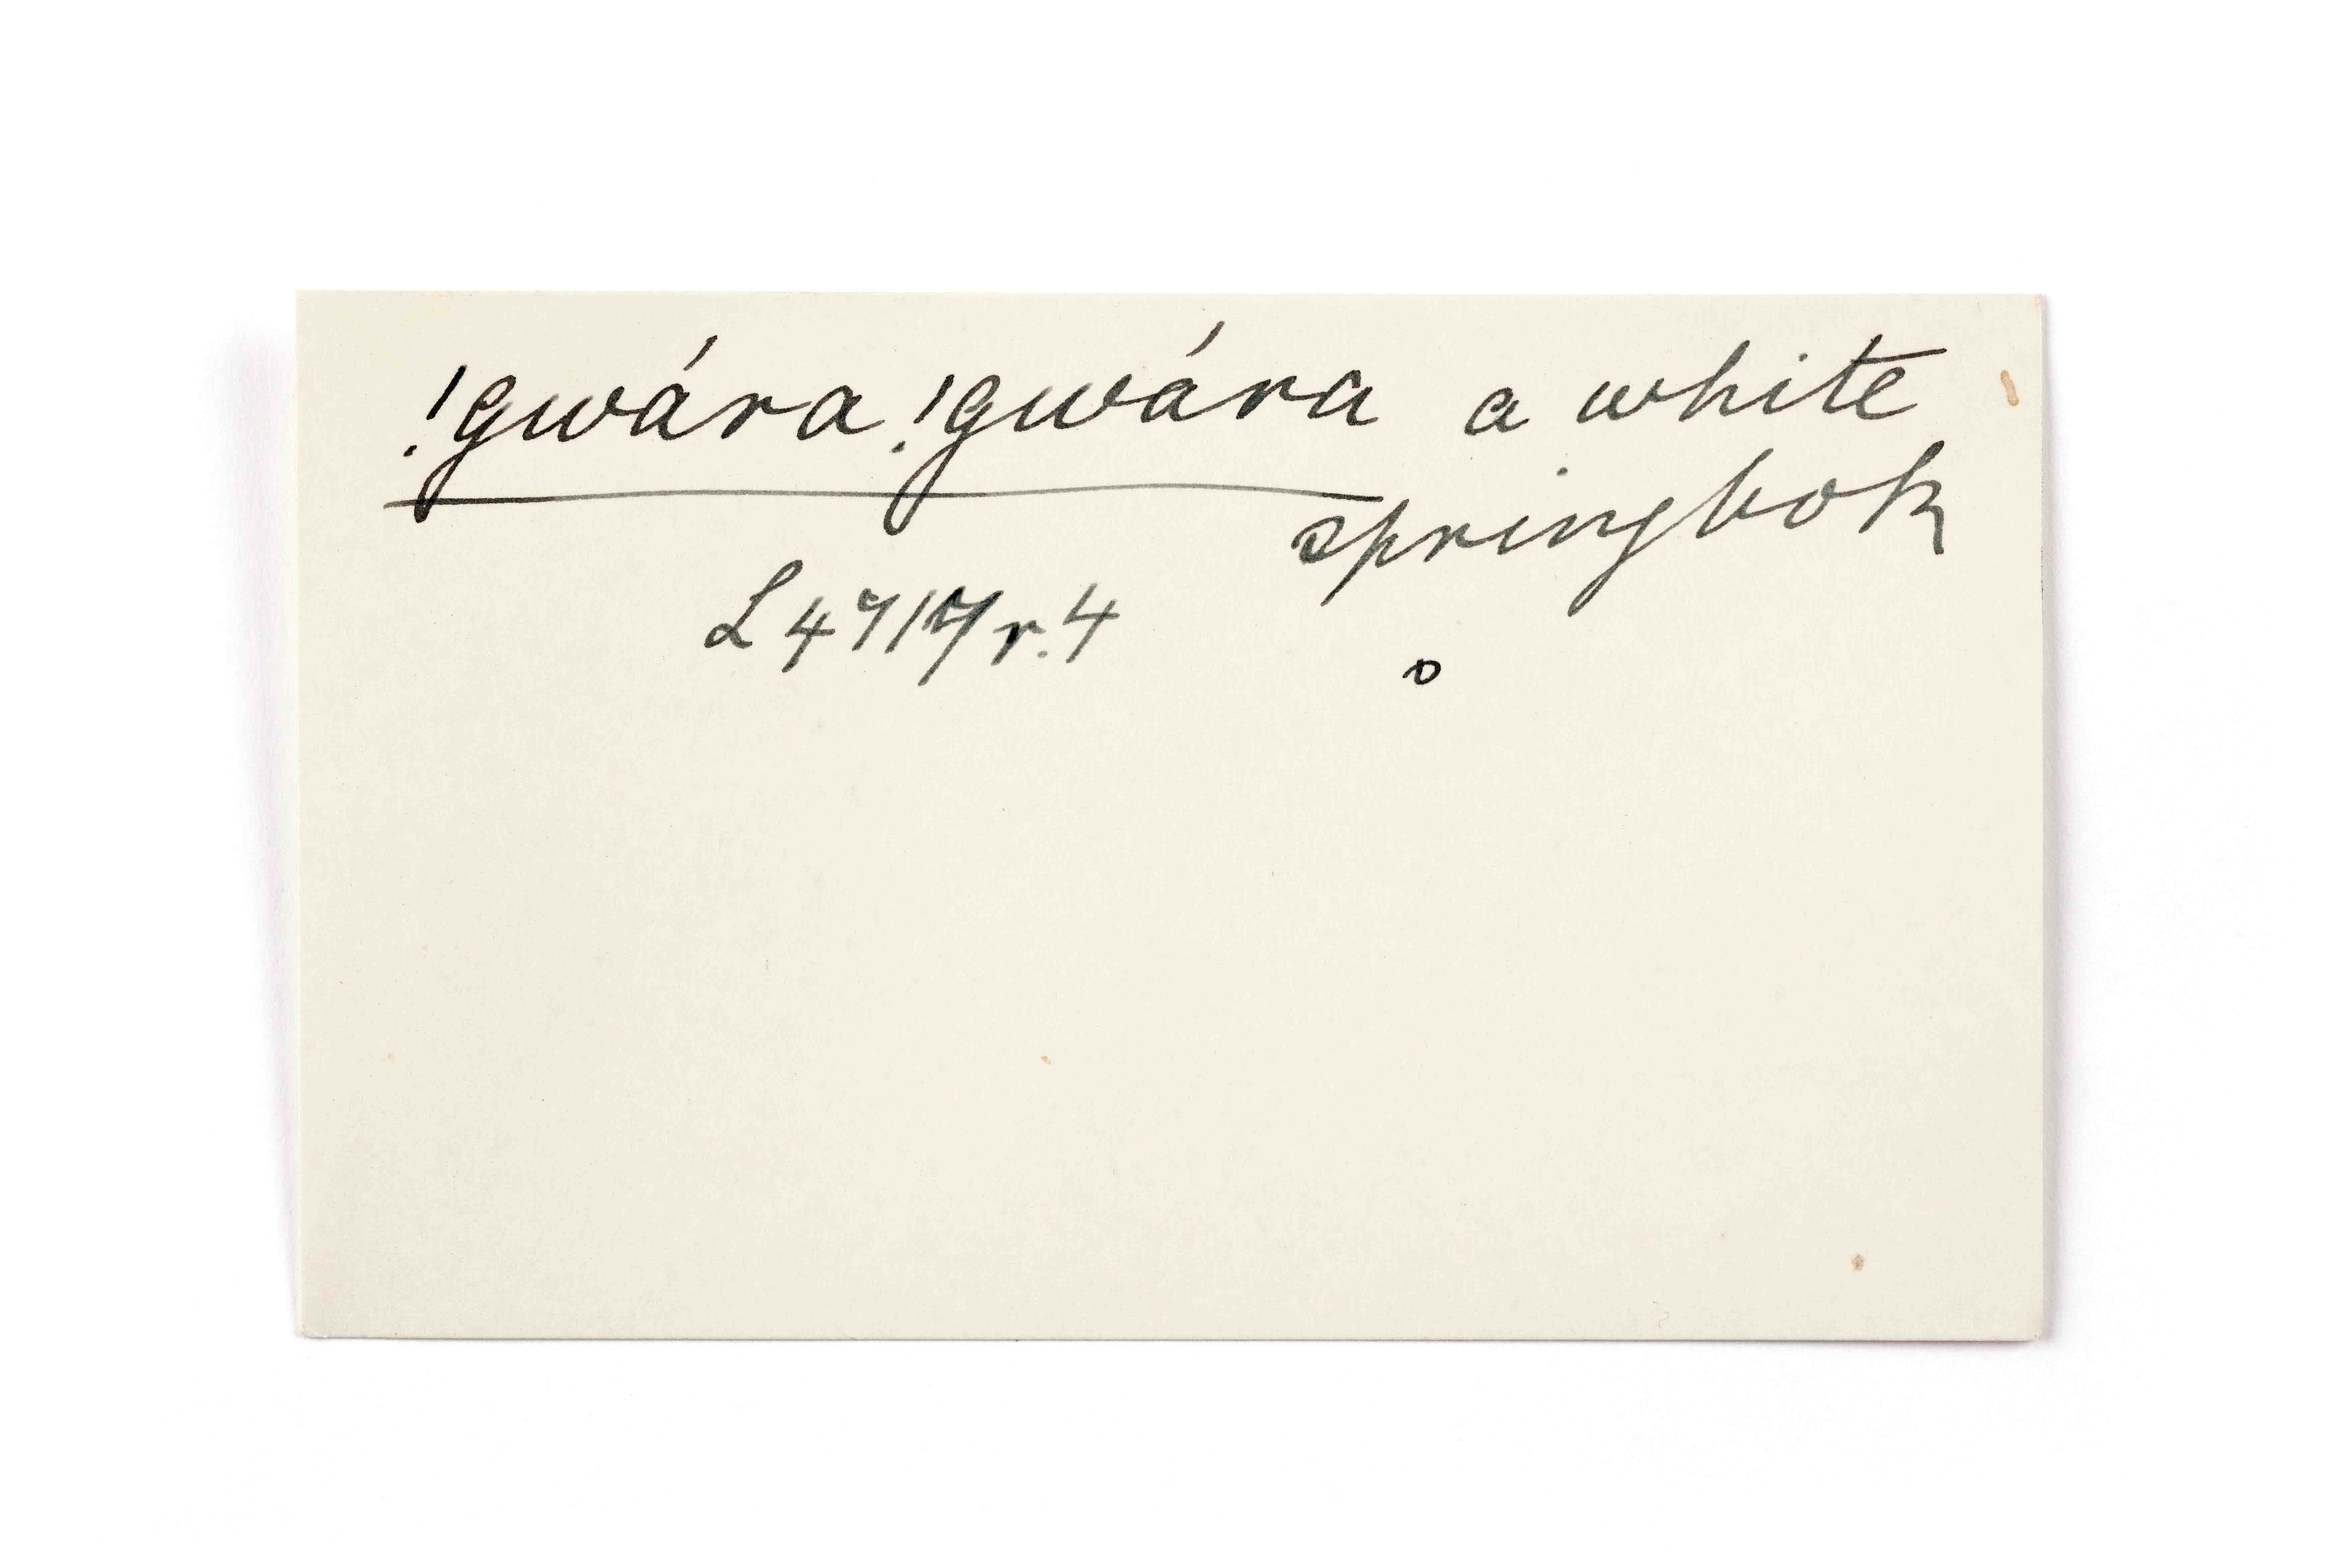 !gwára!gwára a white
springbok
L4717r.4
o